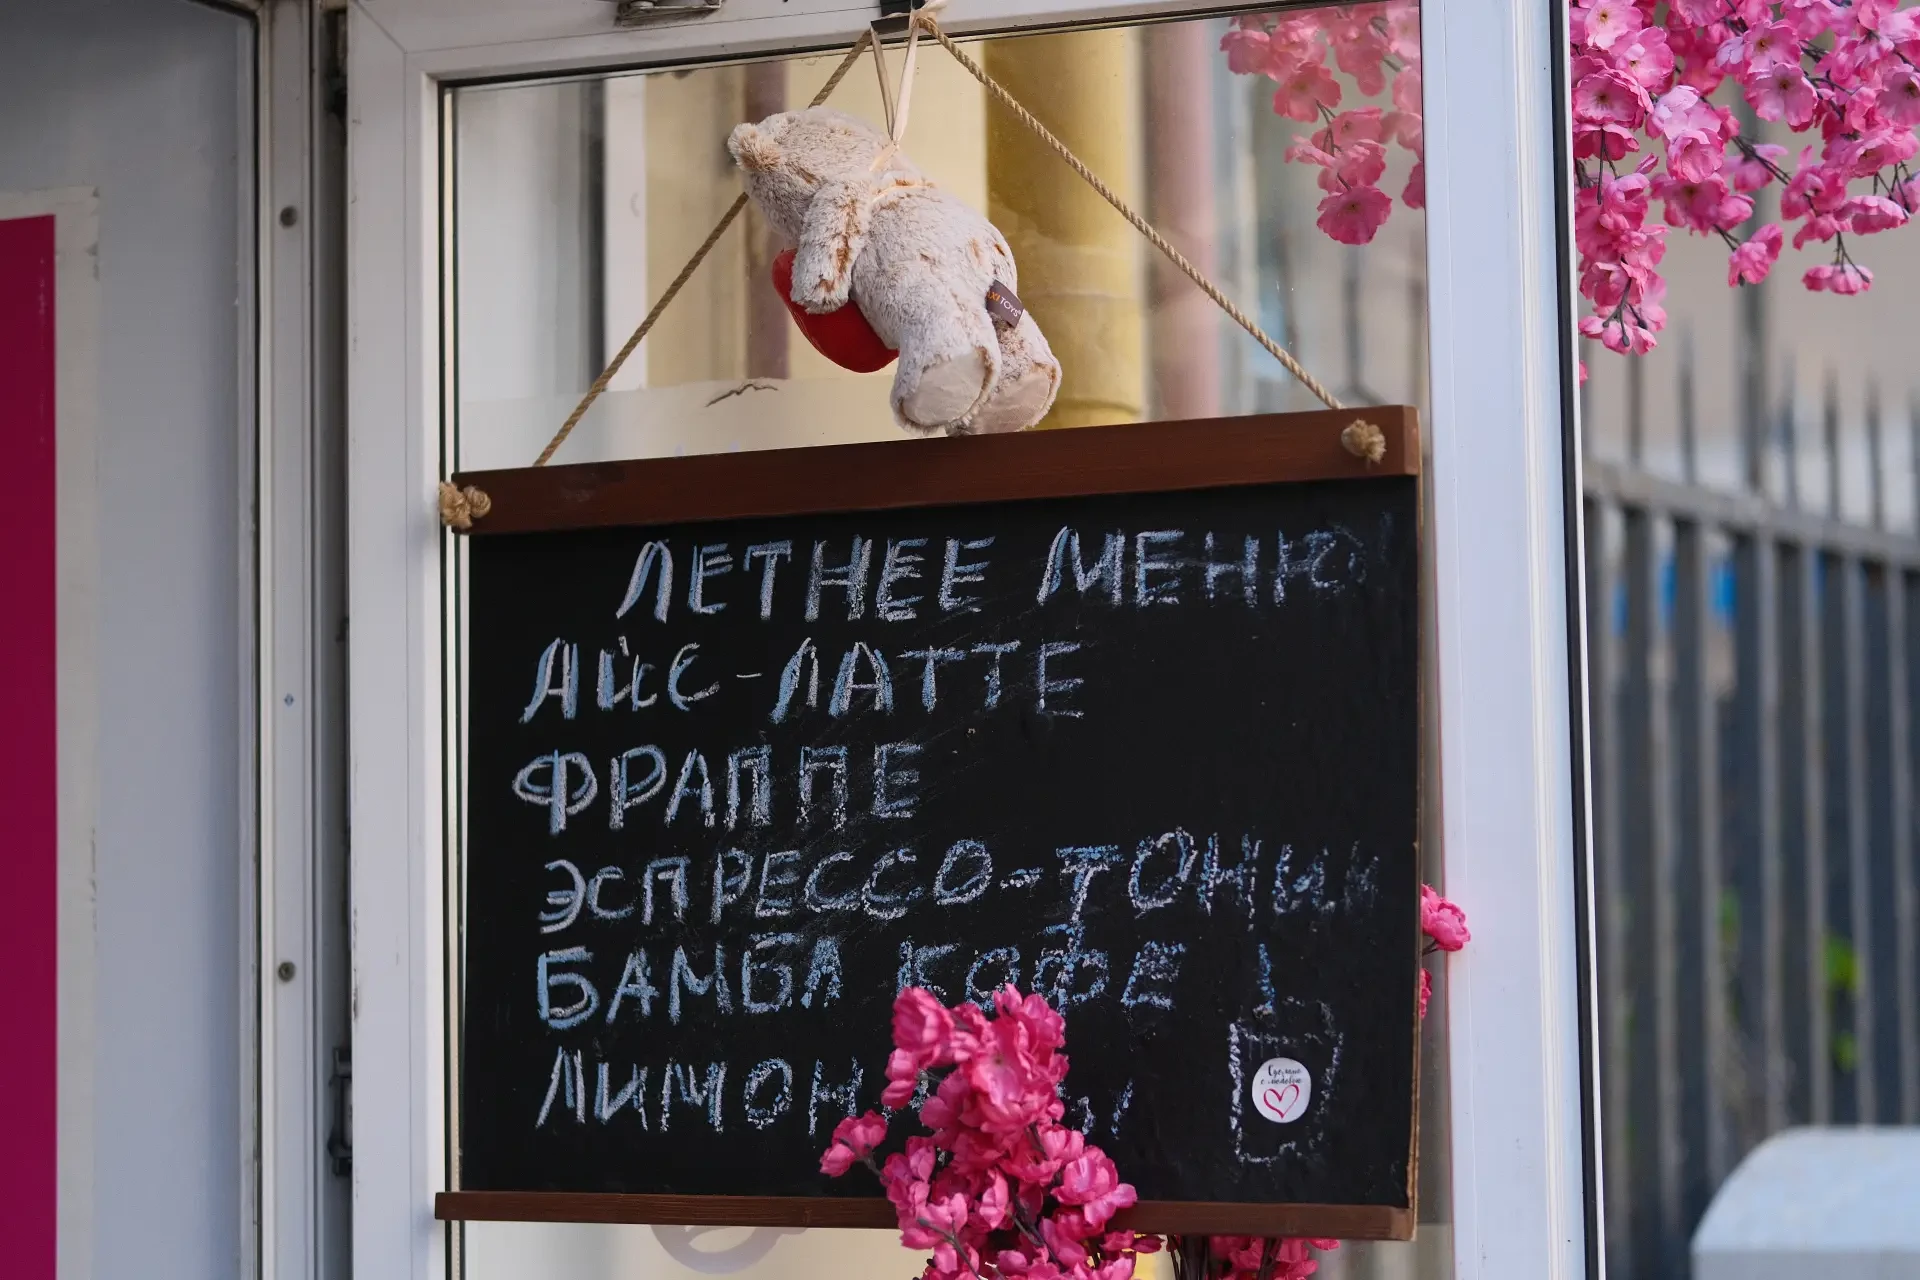 TOYS
ЛЕТНЕЕ МЕНЮ
АЙС-ЛАТТЕ
ФРАППЕ
ЭСПРЕССО-ТОНИК
БАМБЛ КОФЕ
Сделано
с любовью